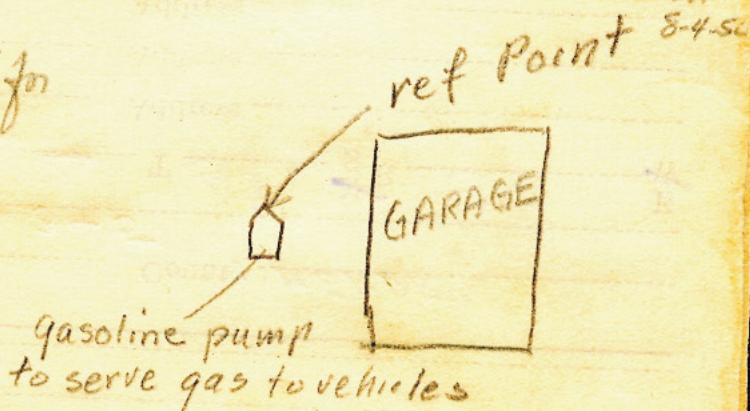 8-4-5
for
ref Point
GARAGE
gasoline pump
to serve gas to vehicles